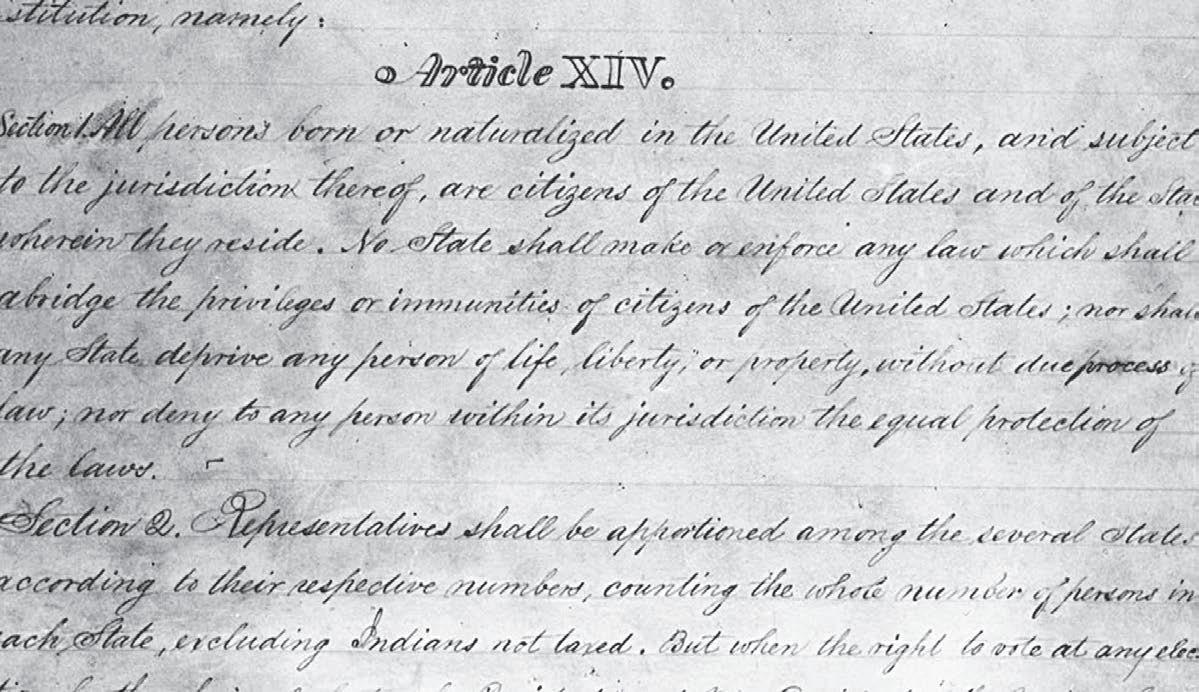 stitution, namely:
Article XIV.
Section 1. All persons born or naturalized in the United States, and subject
to the jurisdiction thereof, are citizens of the United States and of the Stat
wherein they reside. No State shall make or enforce any law which shall
abridge the privileges or immunities of citizens of the United States; nor shall
any State deprive any person of life, liberty, or property, without due process of
law; nor deny to any person within its jurisdiction the equal protection of
the laws.
Section 2. Representatives shall be apportioned among the several States
according to their respective numbers, counting the whole number of persons in
each State, excluding Indians not taxed. But when the right to vote at any elec